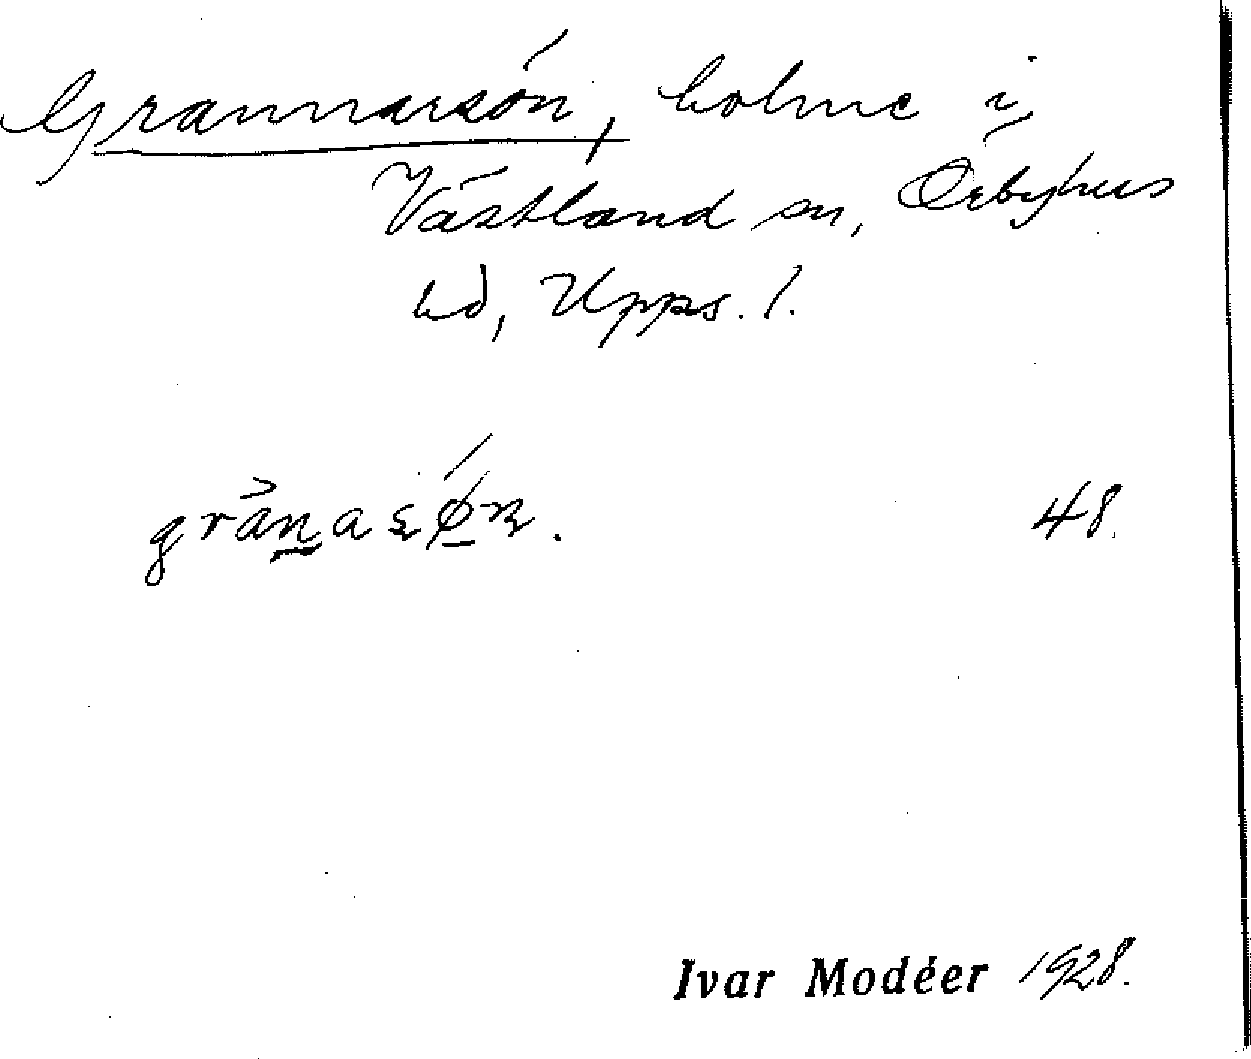 Grannarsön, holme i
Västland sn, Örbyhus
hd, Upps. l.
48.
Ivar Modéer 1928.